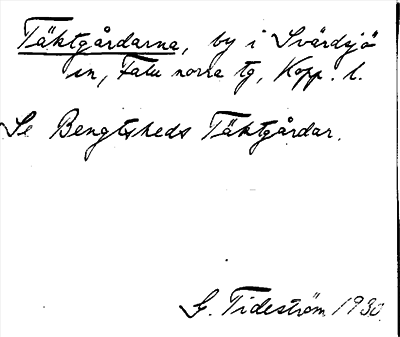 Täktgårdarna, by i Svärdsjö
sn, Falu norra tg, Kopp. l.
Se Bengtsheds Täktgårdar.
G. Tideström 1930.